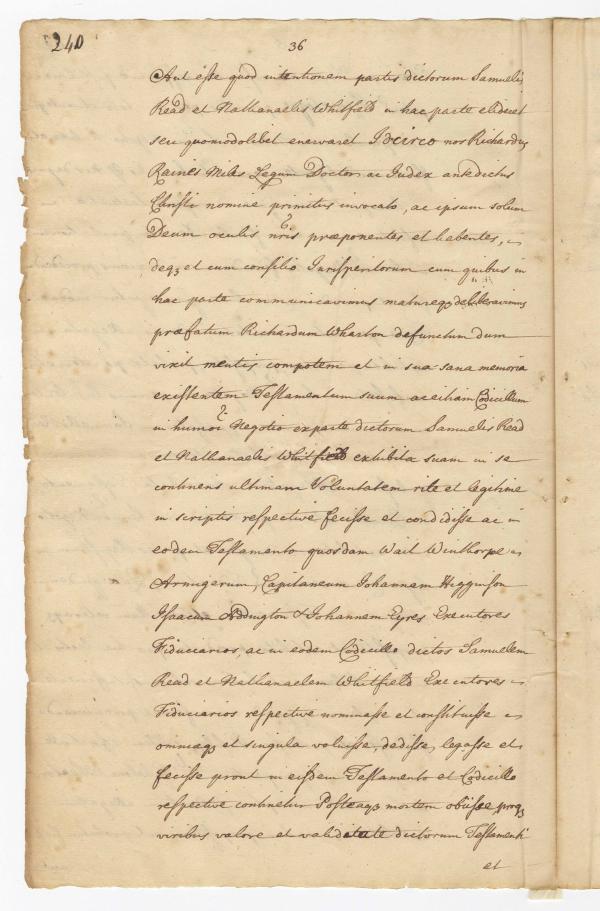 240
36
Aut esse quod intentionem partis dictorum Samuelis
Read et Nathanaelis Whitfield in hac parte elideret
seu quomodolibet enervaret Idcirco nos Richardus
Raines Miles Legum Doctor ac Judex antedictus
Christi nomine primitus invocato, ac ipsum solum
Deum oculis nris præponentes et habentes,
deqz et cum consilio Jurisperitorum cum quibus in
hac parte communicavimus matureqz deliberavimus
præfatum Richardum Wharton defunctum dum
vixit mentis compotem et in sua sana memoria
existentem Testamentum suum ac etiam Codicillum
in humoi Negotio ex parte dictorum Samuelis Read
et Nathanaelis Whitfield exhibita suam in se
continens ultimam Voluntatem rite et legitime
in scriptis respective fecisse et condidisse ac in
eodem Testamento quosdam Wait Winthorpe
Armigerum, Capitaneum Johannem Higginson
Isaacum Addington & Johannem Eyres Executores
Fiduciarios, ac in eodem Codicillo dictos Samuelem
Read et Nathanaelem Whitfield Executores
Fiduciarios respective nominasse et constituisse
omniaqz et singula voluisse, dedisse, legasse et
fecisse prout in eisdem Testamento et Codicillo
respective continetur Posteaqz mortem obiisse, proqz
viribus valore et validitate dictorum Testamenti
et